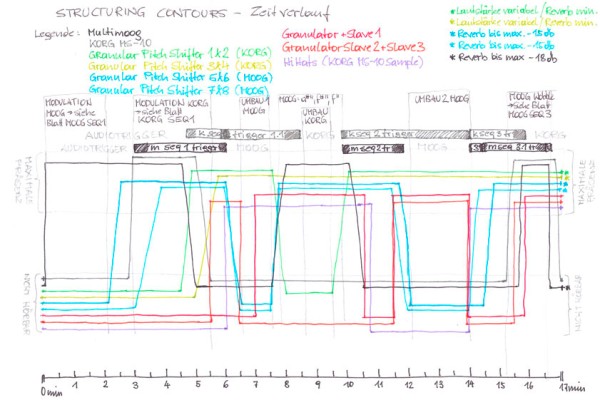 STRUCTURING CONTOURS – Zeitverlauf
Legende: Multimoog
KORG MS-10
Granular Pitch Shifter 1&2 (KORG)
Granular Pitch Shifter 3&4 (KORG)
Granular Pitch Shifter 5&6 (MOOG)
Granular Pitch Shifter 7&8 (MOOG)
Granulator + Slave 1
Granulator Slave 2 + Slave 3
HiHats (KORG MS-10 Sample)
* Lautstärke variabel / Reverb min.
* Lautstärke variabel / Reverb min.
* Reverb bis max. -15 db
* Reverb bis max. -15 db
* Reverb bis max. -18 db
MODULATION MOOG → siehe Blatt MOOG SEQ1
MODULATION KORG → siehe Blatt KORG SEQ1
UMBAU 1 MOOG
UMBAU KORG
UMBAU 2 MOOG
MOOG
siehe Blatt MOOG SEQ 3
AUDIOTRIGGER
k seq 1 trigger 1.1
KORG
k seq 2 trigger
k seq 3
KORG
AUDIOTRIGGER
m seq 1 trigger
MOOG
m seq 2 tr
MOOG
m seq 3.1 tr
MAXIMALE PRÄSENZ
NICHT HÖRBAR
NICHT HÖRBAR
0min 1 2 3 4 5 6 7 8 9 10 11 12 13 14 15 16 17min